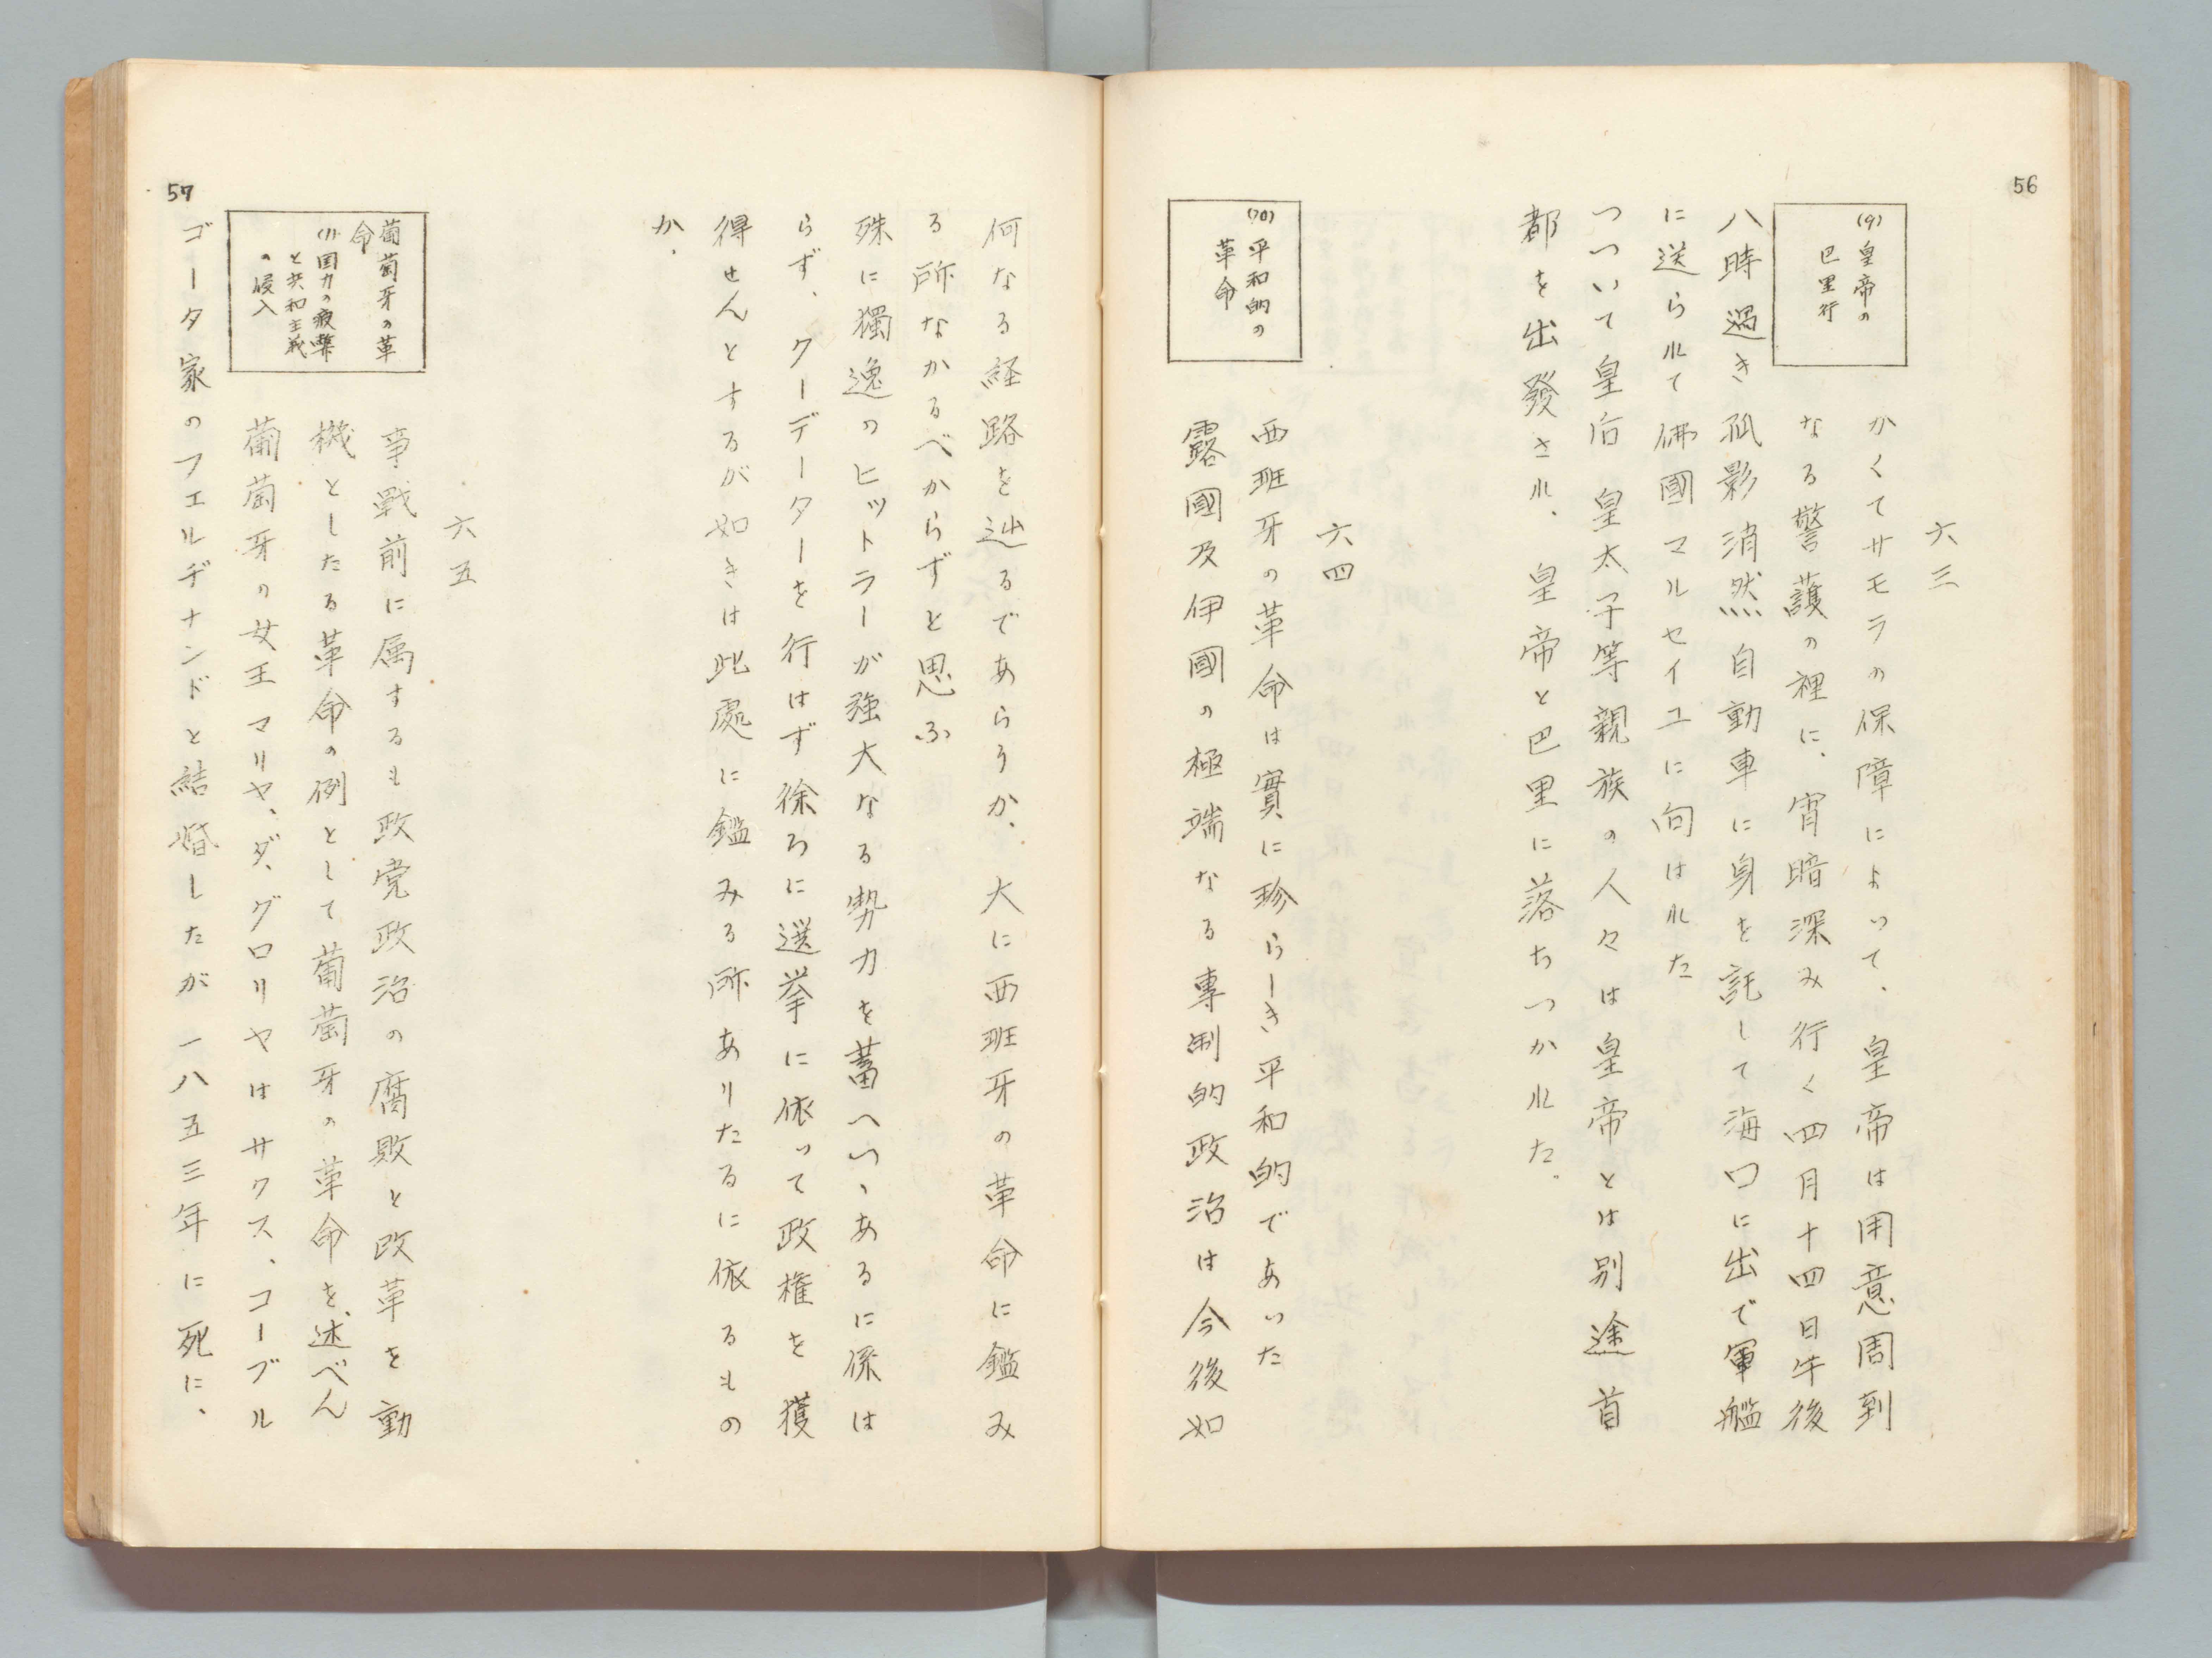 56
六三
(9)皇帝の
巴里行
かくてサモラの保障によつて、皇帝は用意周到
なる警護の裡に、宵暗深み行く四月十四日午後
八時過き孤影消然自動車に身を託して海口に出で軍艦
に送られて佛國マルセイユに向はれた
つついて皇后皇太子等親族の人々は皇帝とは別途首
都を出發され、皇帝と巴里に落ちつかれた。
六四
(10)平和的の
革命
西班牙の革命は實に珍らしき平和的であつた
露國及伊國の極端なる專制的政治は今後如
何なる経路を辿るであらうか、大に西班牙の革命に鑑み
る所なかるべからずと思ふ
殊に獨逸のヒットラーが強大なる勢力を蓄へつゝあるに係は
らず、クーデーターを行はず徐ろに選挙に依って政権を獲
得せんとするが如きは此處に鑑みる所ありたるに依るもの
か.
六五
葡萄牙の革
命
(1)国力の疲弊
と共和主義
の侵入
事戦前に属するも政党政治の腐敗と改革を動
機としたる革命の例として葡萄牙の革命を、述べん
葡萄牙の女王マリヤ、ダ、グロリヤはサクス、コーブル
ゴータ家のフエルヂナンドと結婚したが一八五三年に死に、
57